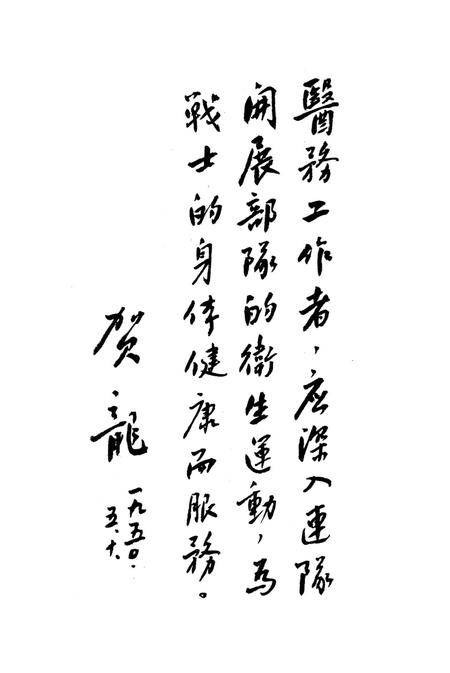 醫務工作者，应深入連隊
開展部隊的衛生運動，為
戰士的身体健康而服務。
賀龍
一九五〇.
五.十.